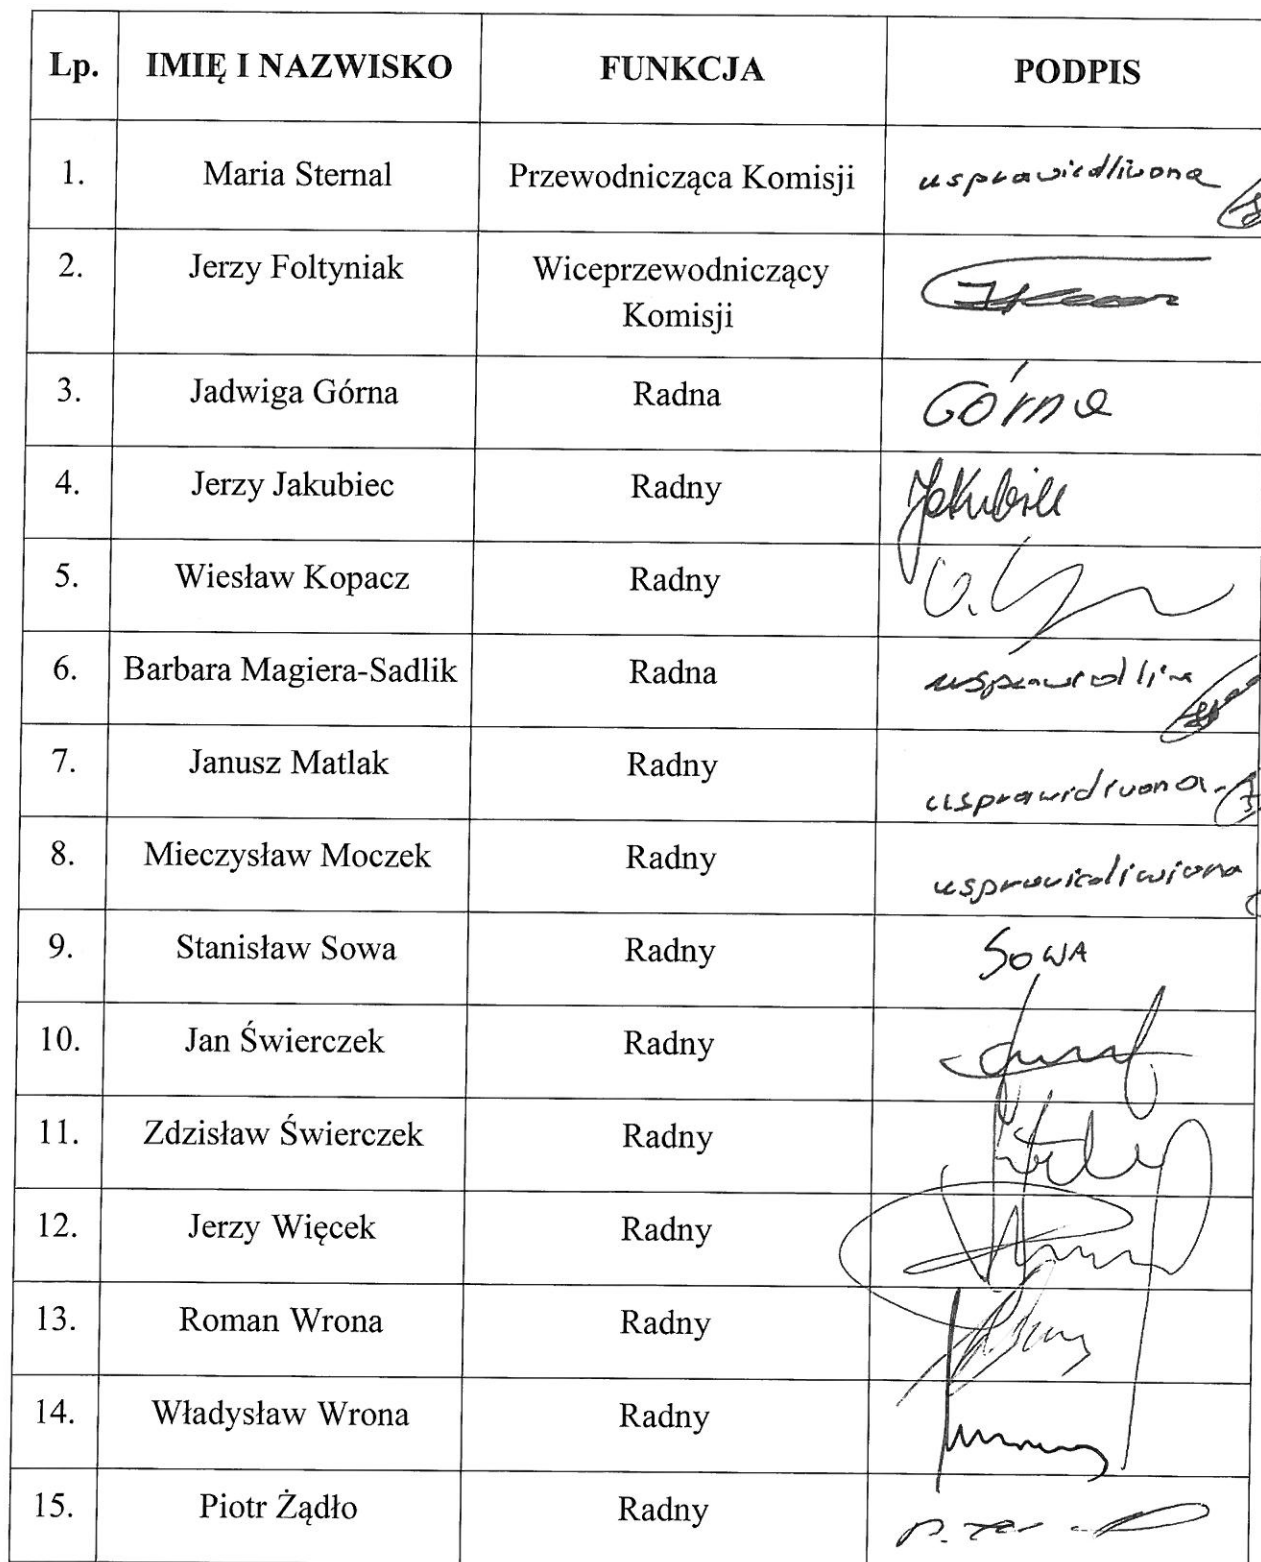 Lp. IMIĘ I NAZWISKO FUNKCJA PODPIS
1. Maria Sternal Przewodnicząca Komisji usprawiedliwona
2. Jerzy Foltyniak Wiceprzewodniczący
Komisji
3. Jadwiga Górna Radna Górna
4. Jerzy Jakubiec Radny Jakubiec
5. Wiesław Kopacz Radny
6. Barbara Magiera-Sadlik Radna
7. Janusz Matlak Radny
8. Mieczysław Moczek Radny
9. Stanisław Sowa Radny SOWA
10. Jan Świerczek Radny
11. Zdzisław Świerczek Radny
12. Jerzy Więcek Radny
13. Roman Wrona Radny
14. Władysław Wrona Radny
15. Piotr Żądło Radny